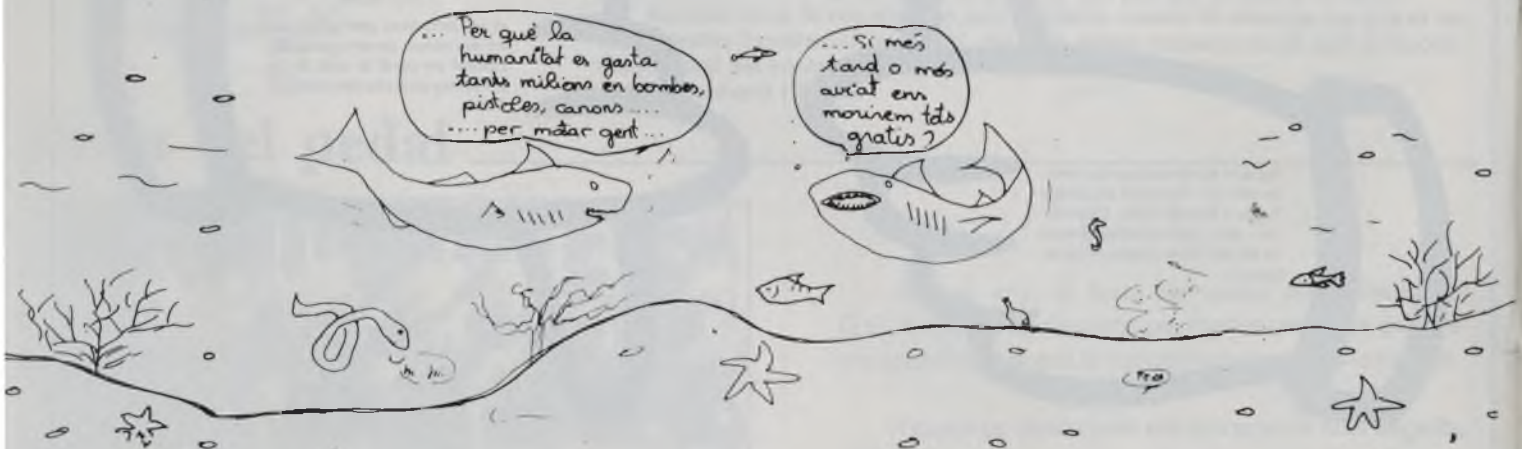 ... Per què la
humanitat es gasta
tants milions en bombes,
pistoles, canons ....
.... per matar gent ...
... si més
tard o més
aviat ens
morirem tots
gratis ?